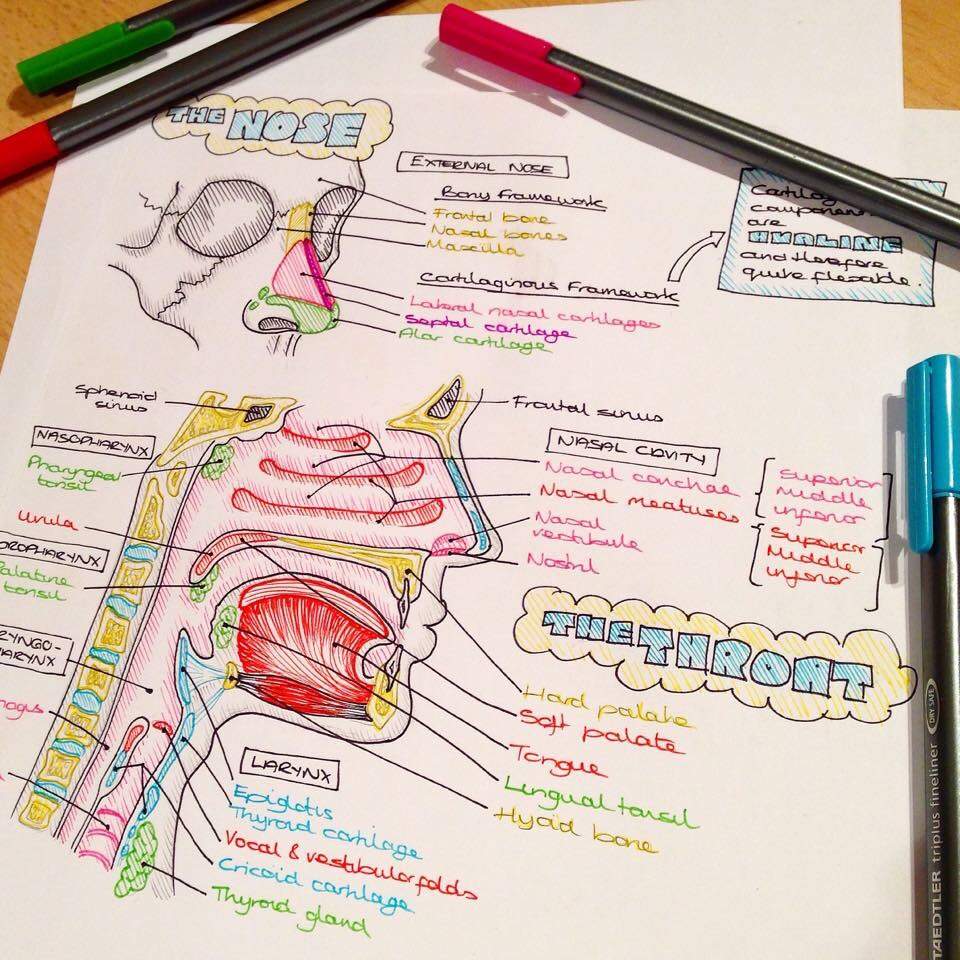 THE NOSE
EXTERNAL NOSE
Bony Framework
Frontal bone
Nasal bones
Maxilla
Cartilaginous Framework
Lateral nasal cartilages
Septal cartilage
Alar cartilage
are
HYALINE
and therefore
quite flexible.
Sphenoid
sinus
Frontal sinus
NASOPHARYNX
Pharyngeal
tonsil
Uvula
Palatine
tonsil
NASAL CAVITY
Nasal conchae
Nasal meatuses
Nasal
vestibule
Nostril
Superior
Middle
inferior
Superior
Middle
inferior
THE THROAT
Hard palate
Soft palate
Tongue
Lingual tonsil
Hyoid bone
LARYNX
Epiglotis
Thyroid cartilage
Vocal & vestibular folds
Cricoid cartilage
Thyroid gland
DRY SAFE
STAEDTLER triplus fineliner